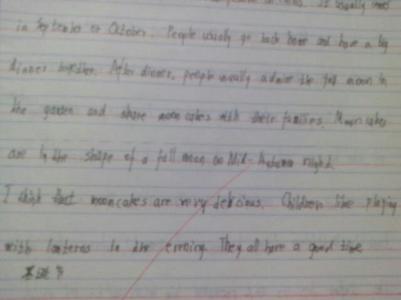 It usually comes
in September or October. People usually go back home and have a big
dinner together. After dinner, people usually admire the full moon in
the garden and share mooncakes with their families. Mooncakes
are in the shape of a full moon on Mid-Autumn night.
I think that mooncakes are very delicious. Children like playing
with lanterns in the evening. They all have a good time